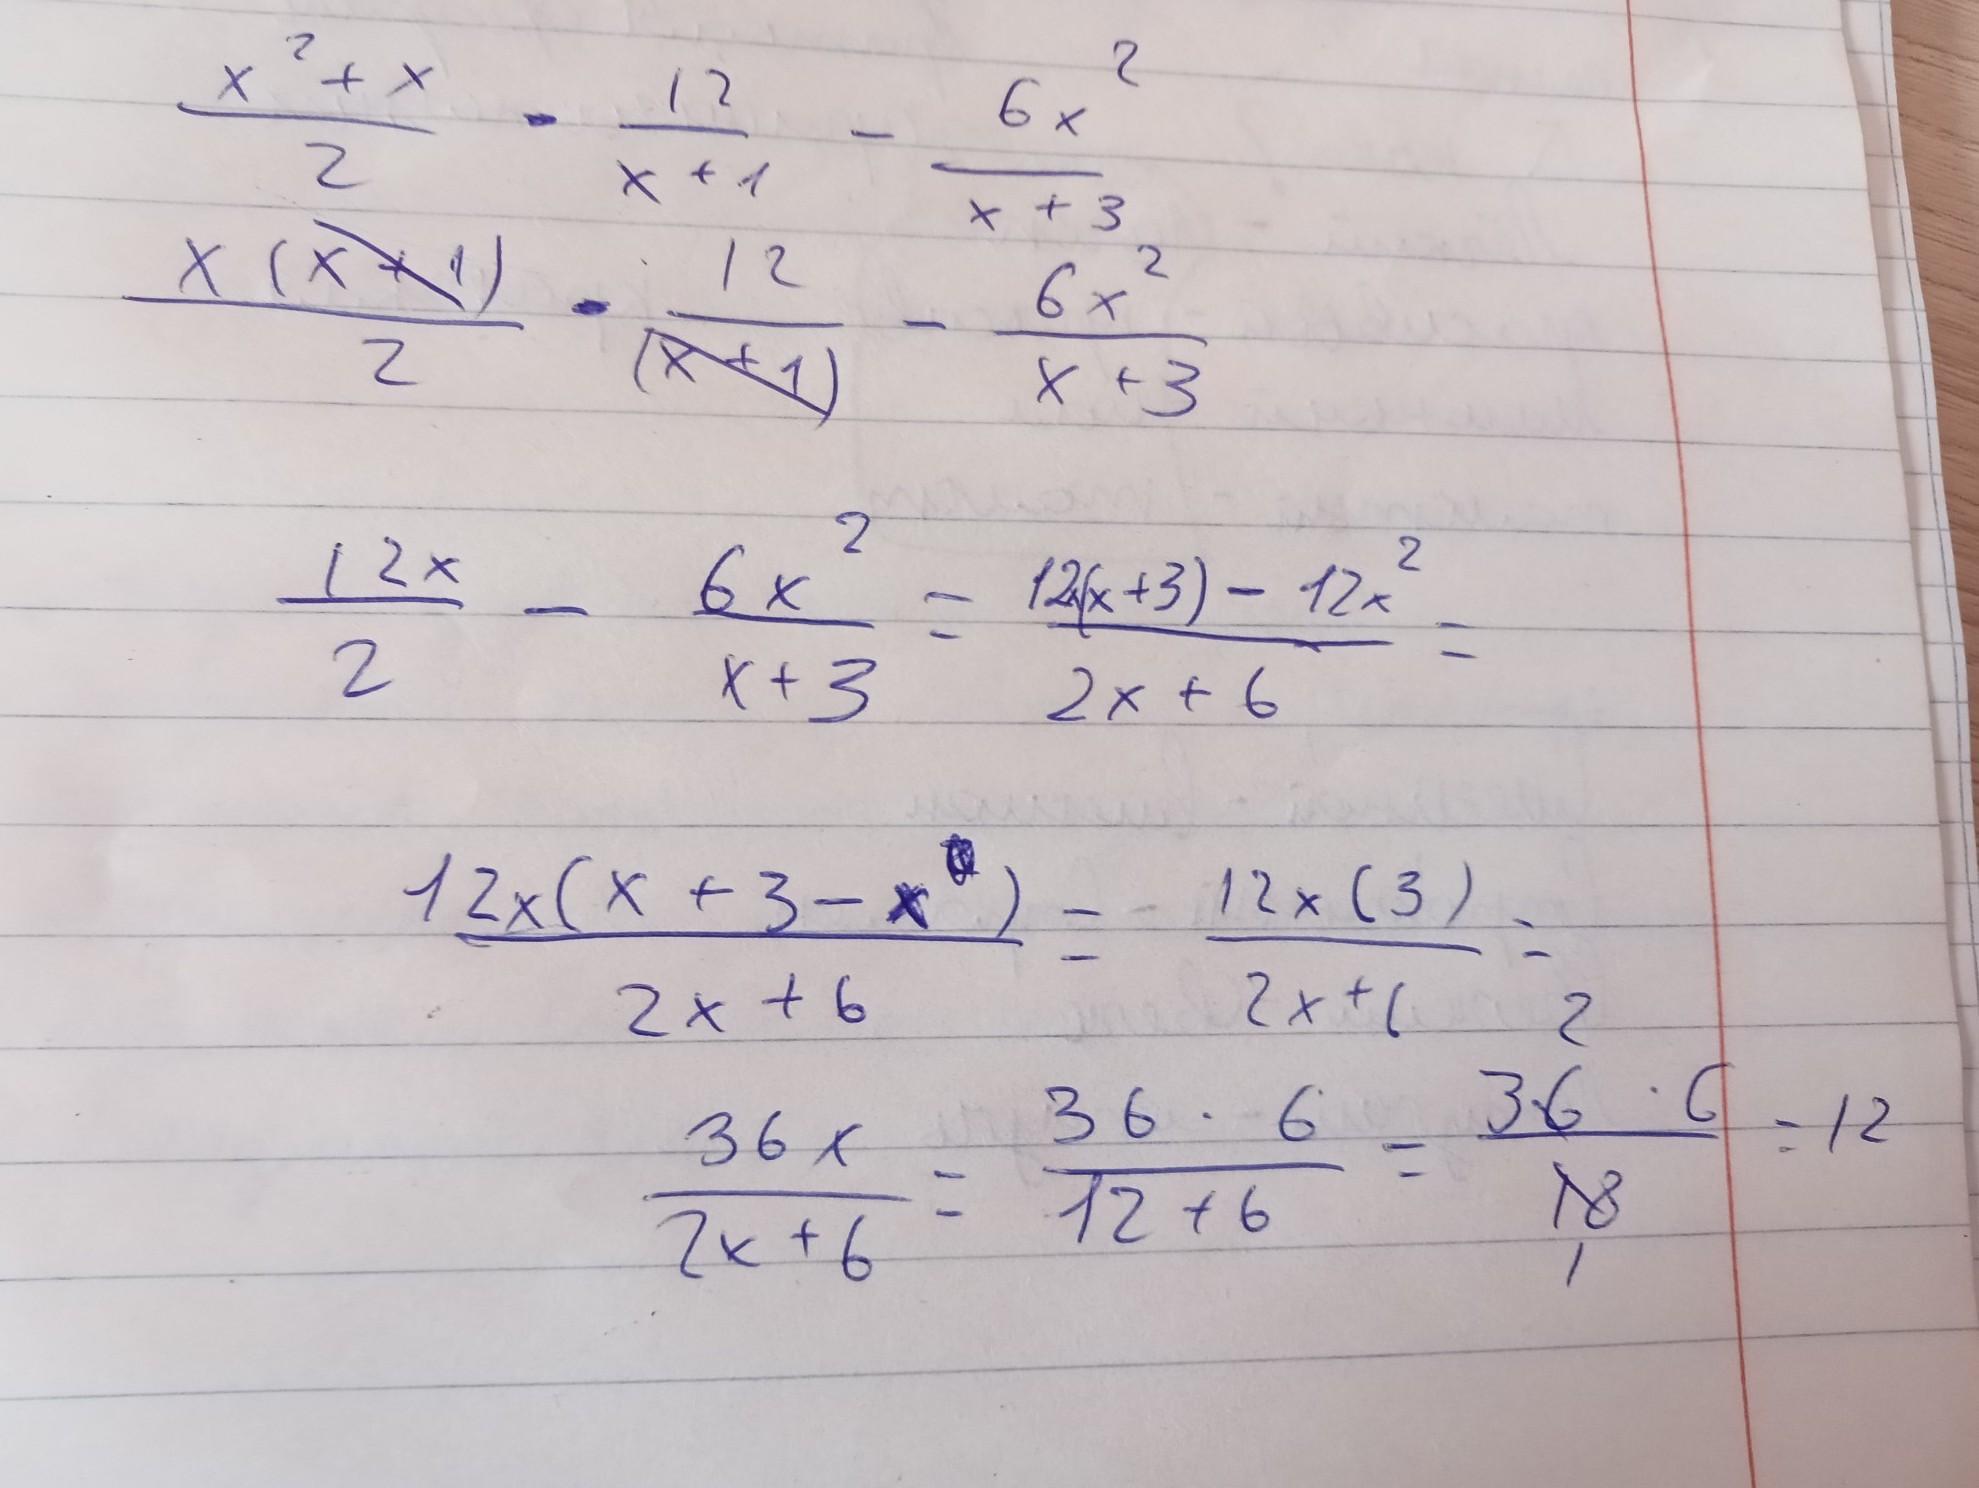 x² + x / 2 · 12 / x + 1 − 6x² / x + 3
x (x + 1) / 2 · 12 / (x + 1) − 6x² / x + 3
12x / 2 − 6x² / x + 3 = 12x(x+3) − 12x² / 2x + 6 =
12x(x + 3 − x) / 2x + 6 = 12x(3) / 2x + 6 =
36x / 2x + 6 = 36 · 6 / 12 + 6 = 2 36 · 6 / 18 1 = 12